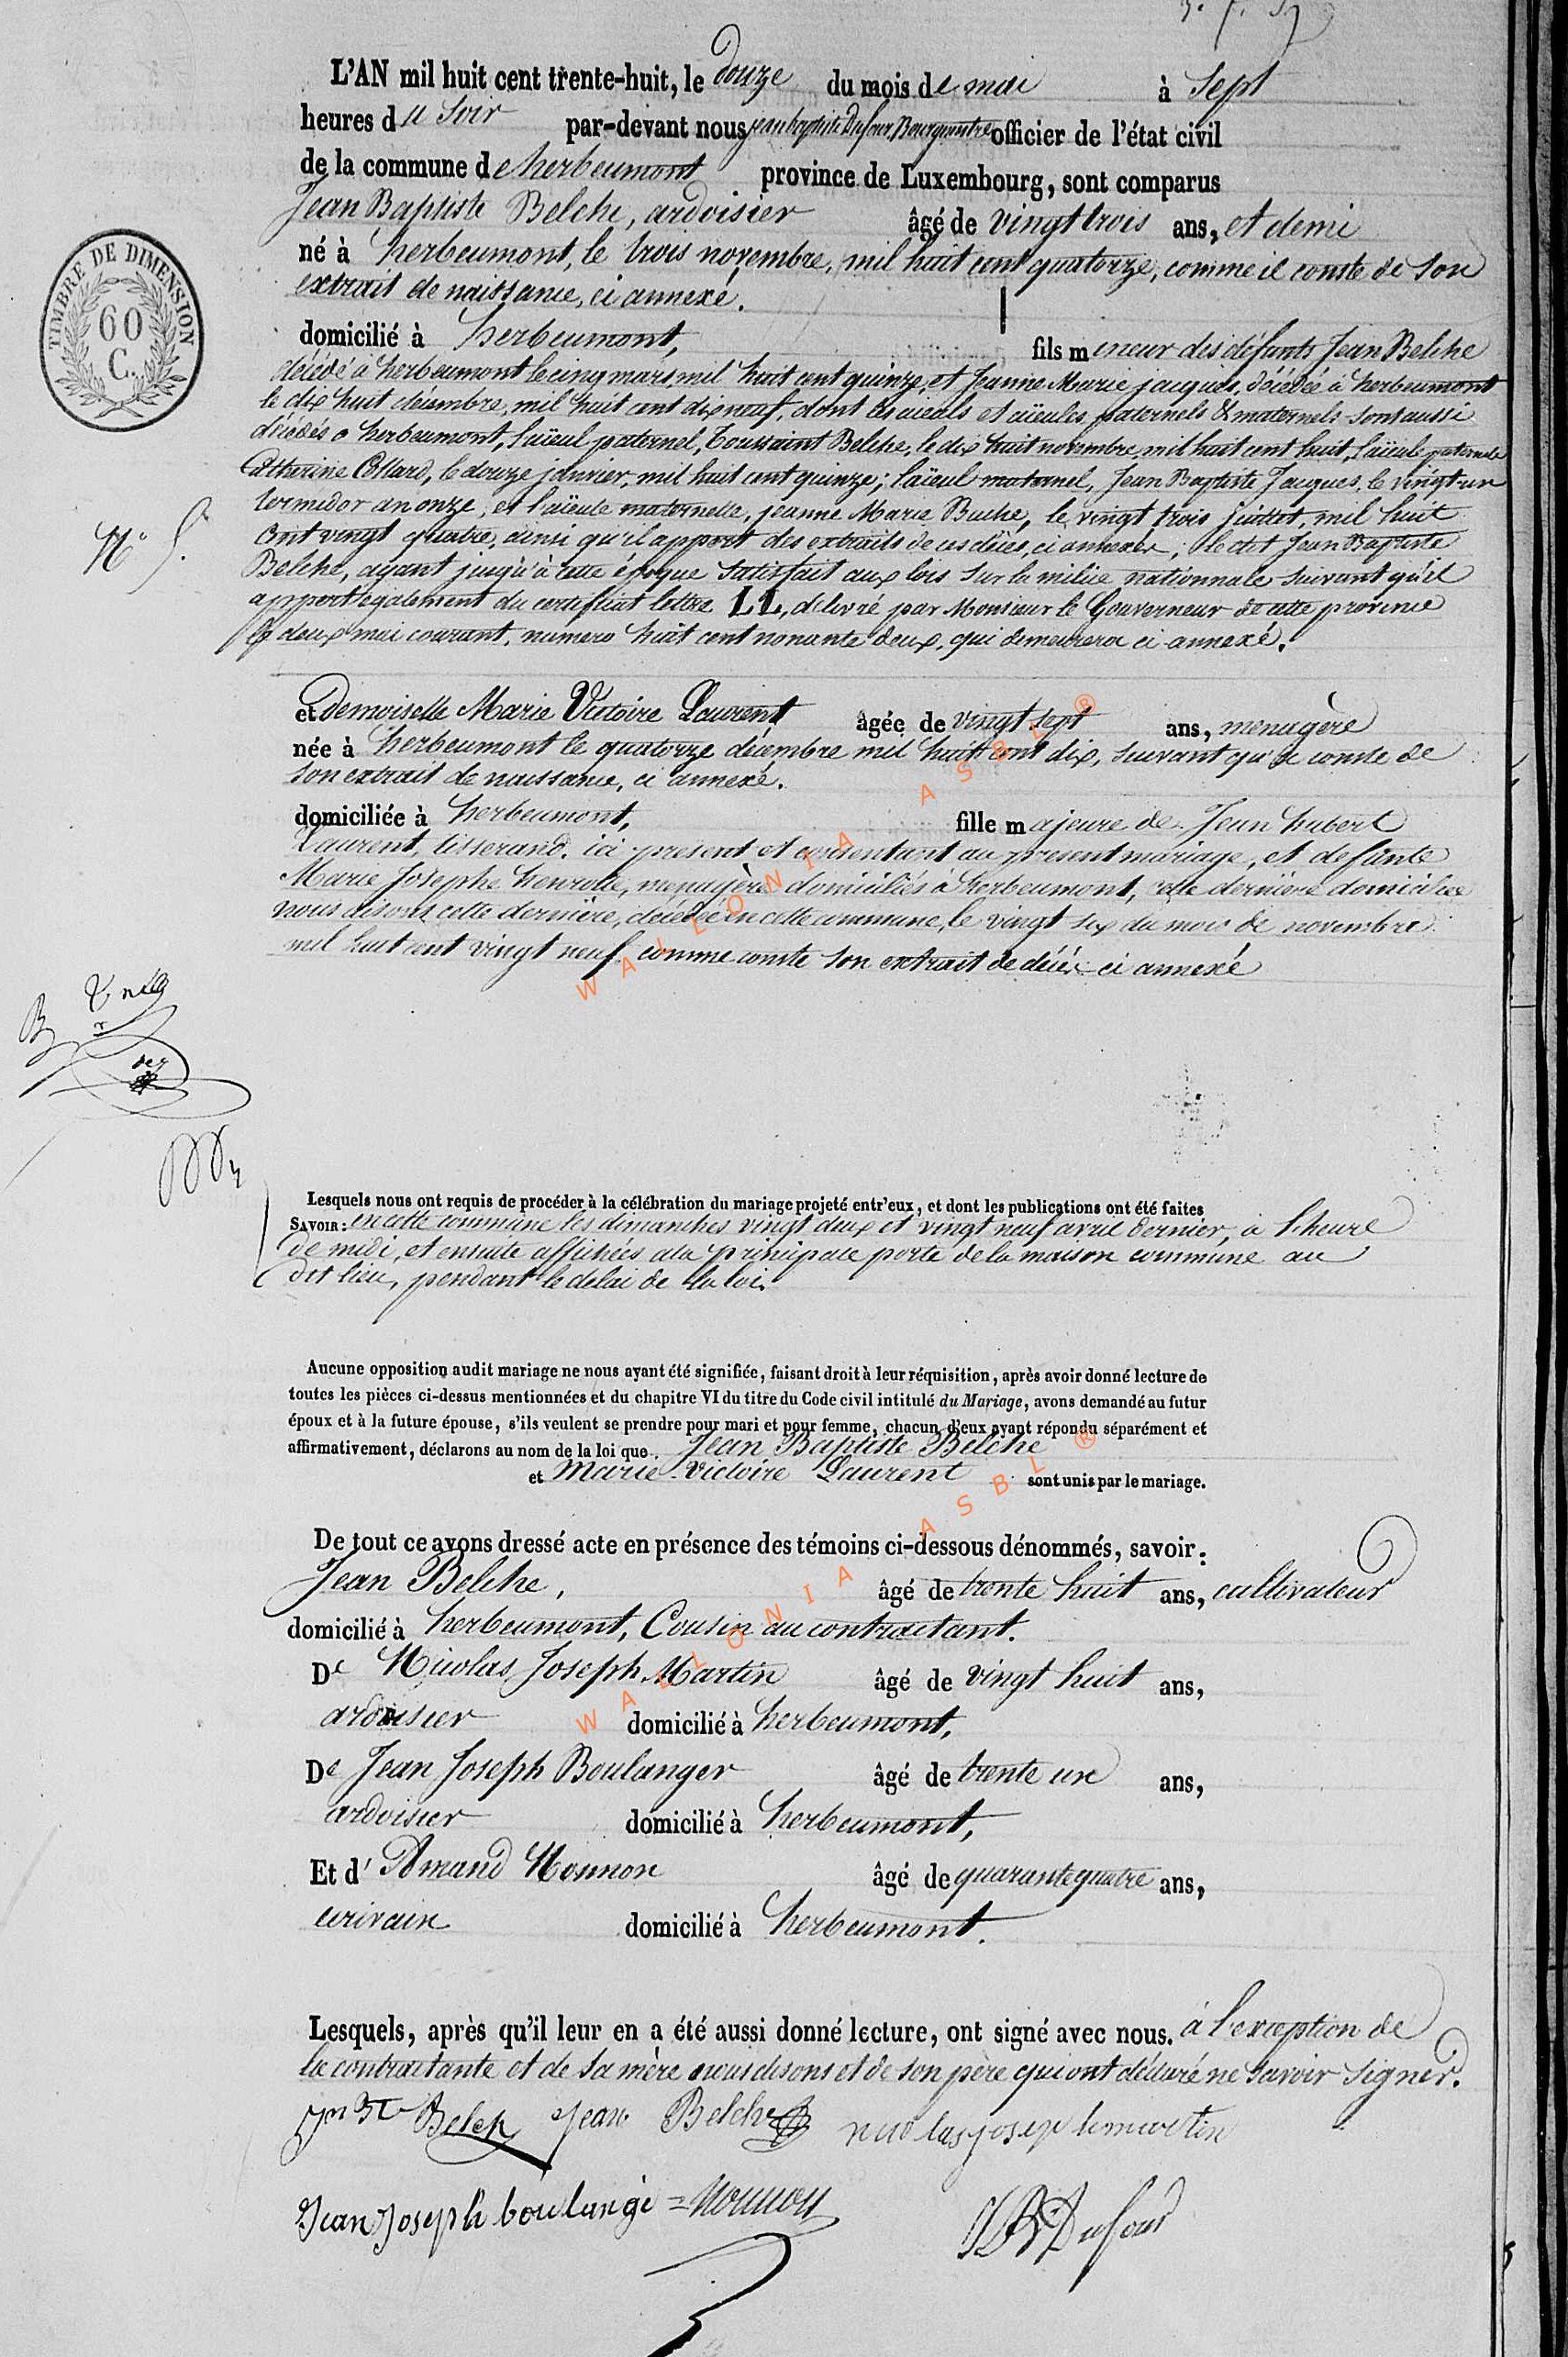 L'AN mil huit cent trente-huit, le douze du mois de mai à Sept
heures du Soir par-devant nous jean baptiste Dufour, Bourguemtre officier de l'état civil
de la commune de herbeumont province de Luxembourg, sont comparus
Jean Baptiste Belche, ardoisier âgé de vingt trois ans, et demi
né à herbeumont, le trois novembre, mil huit cent quatorze, comme il conste de son
extrait de naissance, ci annexé.
TIMBRE DE DIMENSION
60
C.
domicilié à herbeumont, fils mineur des défunts Jean Belche
décédé à herbeumont le cinq mars mil huit cent quinze, et Jeanne Marie jacques, décédée à herbeumont
le dix huit décembre, mil huit cent dix neuf, dont les aieuls et aïeules paternels & maternels sont aussi
décédés a herbeumont, l'aïeul paternel, Toussaint Belche, le dix huit novembre, mil huit cent huit, l'aïeule paternelle
Catherine Collard, le douze janvier, mil huit cent quinze; l'aïeul maternel, Jean Baptiste Jacques, le vingt-un
termidor an onze, et l'aïeule maternelle, jeanne Marie Buche, le vingt trois juillet, mil huit
N° 5.
Cent vingt quatre, ainsi qu'il appert des extraits de ces décès, ci annexés; le dit Jean Baptiste
Belche, ayant jusqu'à cette époque Satisfait aux lois sur la milice nationnale suivant qu'il
appert egalement du certificat lettre LL, délivré par Monsieur le Gouverneur de cette province
le deux mai courant, numero huit cent nonante deux, qui demeurera ci annexé.
et Demoiselle Marie Victoire Laurent âgée de vingt sept ans, menagère
née à herbeumont le quatorze décembre mil huit cent dix, suivant qu'il conste de
son extrait de naissance, ci annexé.
domiciliée à herbeumont, fille majeure de Jean hubert
Laurent, tisserand, ici présent et consentant au present mariage, et défunte
Marie Josephe henrotte, menagère domiciliés à herbeumont, cette dernière domiciliée
nous disons cette dernière, décédée en cette commune, le vingt six du mois de novembre
mil huit cent vingt neuf comme conste son extrait de décès ci annexé
Lesquels nous ont requis de procéder à la célébration du mariage projeté entr'eux, et dont les publications ont été faites
SAVOIR: en cette commune les dimanches vingt deux et vingt neuf avril dernier, à l'heure
de midi, et ensuite affichées a la principale porte de la maison commune au
dit lieu, pendant le delai de la loi.
Aucune opposition audit mariage ne nous ayant été signifiée, faisant droit à leur réquisition, après avoir donné lecture de
toutes les pièces ci-dessus mentionnées et du chapitre VI du titre du Code civil intitulé du Mariage, avons demandé au futur
époux et à la future épouse, s'ils veulent se prendre pour mari et pour femme, chacun d'eux ayant répondu séparément et
affirmativement, déclarons au nom de la loi que Jean Baptiste Belche
et Marie-Victoire Laurent sont unis par le mariage.
De tout ce avons dressé acte en présence des témoins ci-dessous dénommés, savoir:
Jean Belche, âgé de trente huit ans, cultivateur
domicilié à herbeumont, Cousin au contractant.
De Nicolas Joseph Martin âgé de vingt huit ans,
ardoisier domicilié à herbeumont,
De Jean Joseph Boulanger âgé de trente un ans,
ardoisier domicilié à herbeumont,
Et d' Amand Monnon âgé de quarante quatre ans,
ecrivain domicilié à herbeumont.
Lesquels, après qu'il leur en a été aussi donné lecture, ont signé avec nous. à l'exception de
la contractante et de sa mère nous disons et de son père qui ont déclaré ne savoir signer.
Jean Belche
Jean Joseph boulangé = Monnon
JB Dufour
WALLONIA ASBL ®
WALLONIA ASBL ®